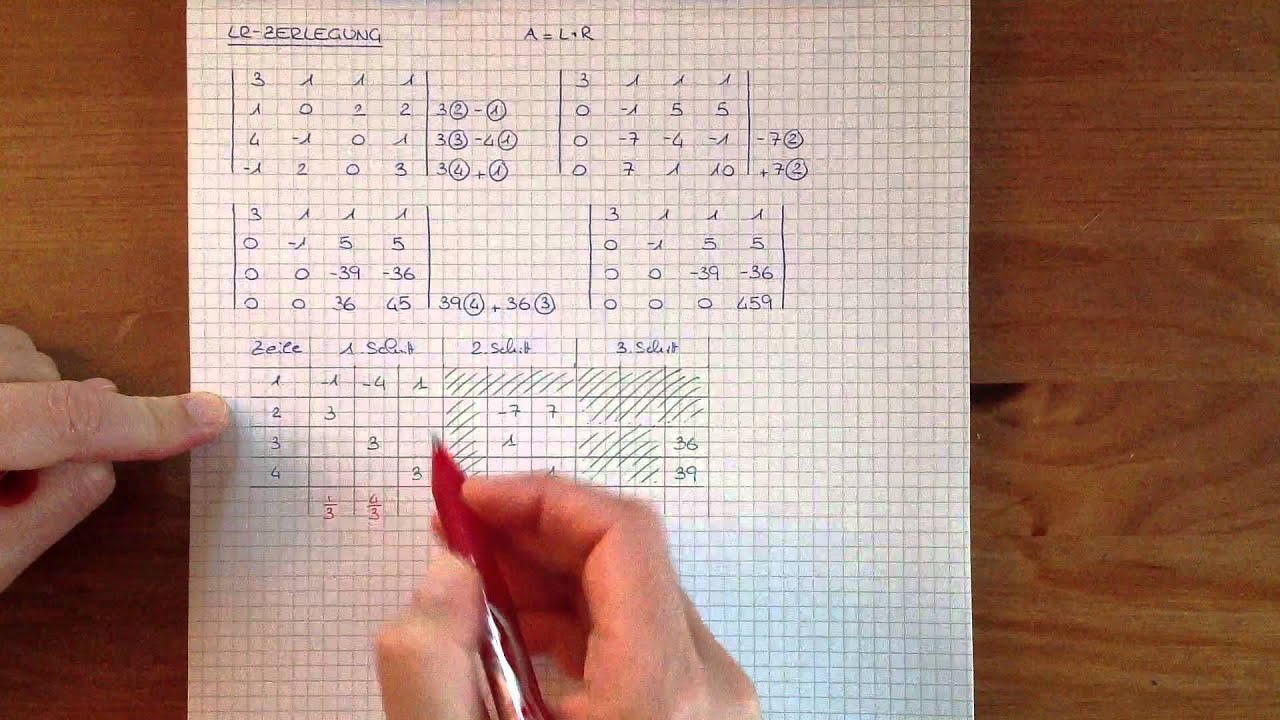 LR-ZERLEGUNG A = L·R
3 1 1 1
1 0 2 2 3② - ①
4 -1 0 1 3③ - 4①
-1 2 0 3 3④ + ①
3 1 1 1
0 -1 5 5
0 -7 -4 -1 -7②
0 7 1 10 +7②
3 1 1 1
0 -1 5 5
0 0 -39 -36
0 0 36 45 39④ + 36③
3 1 1 1
0 -1 5 5
0 0 -39 -36
0 0 0 459
Zeile 1. Schritt 2. Schritt 3. Schritt
1 -1 -4 1
2 3 -7 7
3 3 1 36
4 3 1 39
1/3 4/3